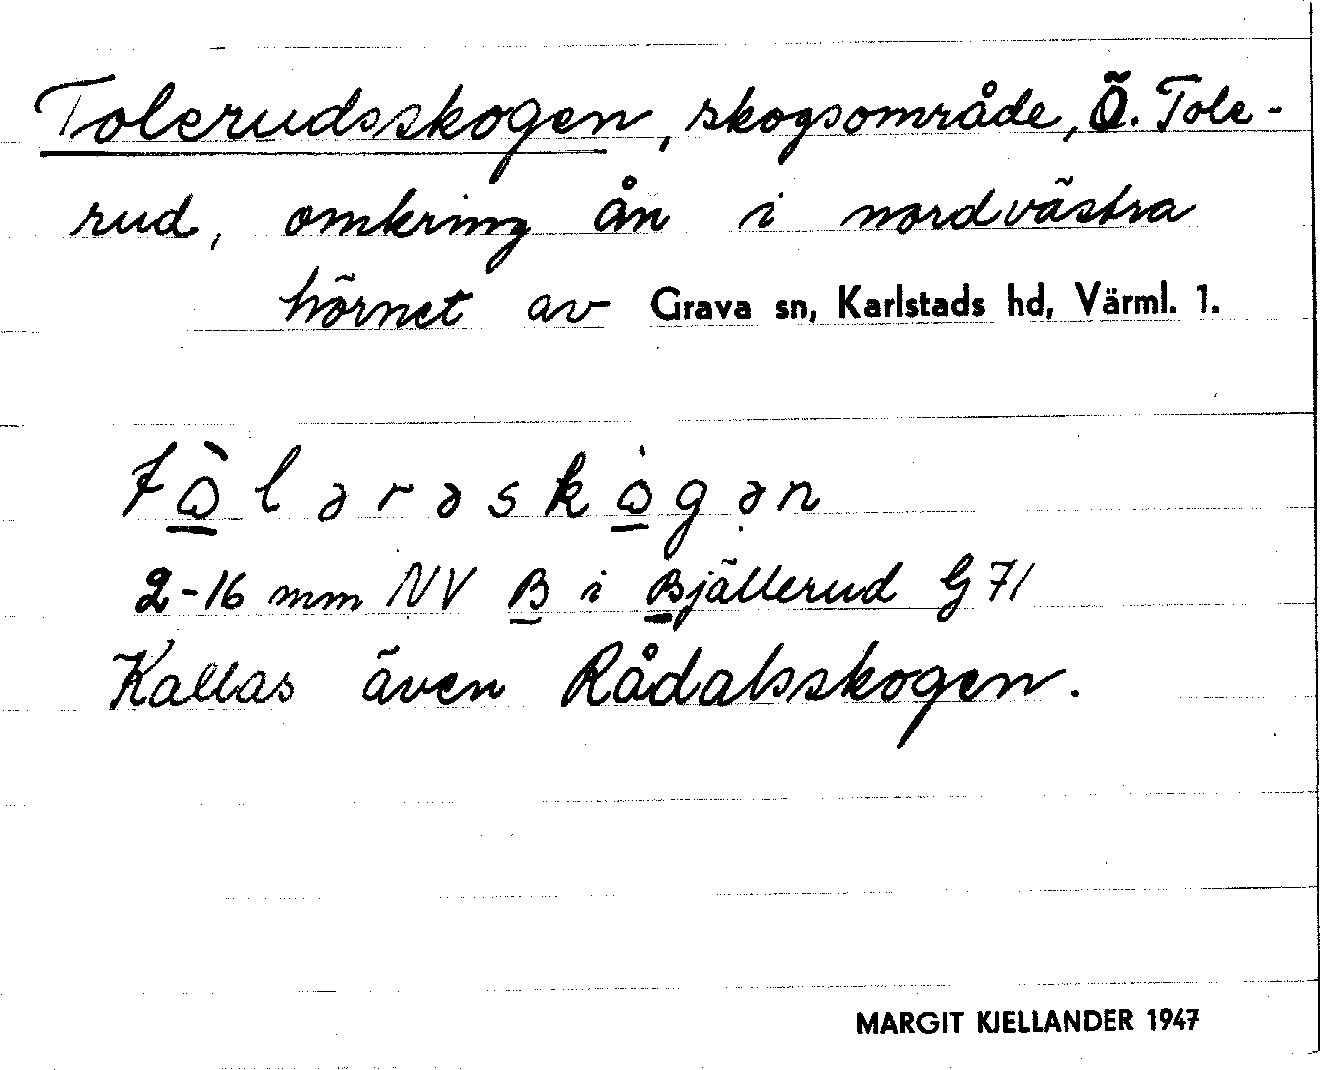 Tolerudsskogen, skogsområde, Ö. Tole-
rud, omkring ån i nordvästra
hörnet av Grava sn, Karlstads hd, Värml. l.
2-16 mm NV B i Bjällerud G 71
Kallas även Rådalsskogen.
MARGIT KJELLANDER 1947